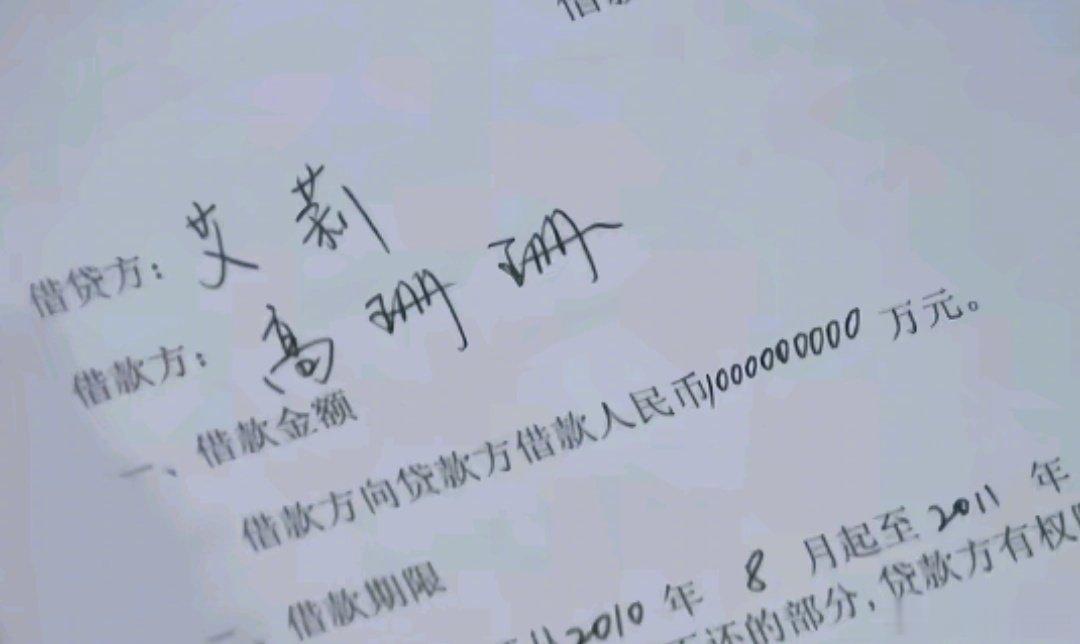 借款
借贷方：艾莉
借款方：高珊珊
一、借款金额
借款方向贷款方借款人民币1000000000万元。
二、借款期限
从2010年8月起至2011年
还的部分，贷款方有权